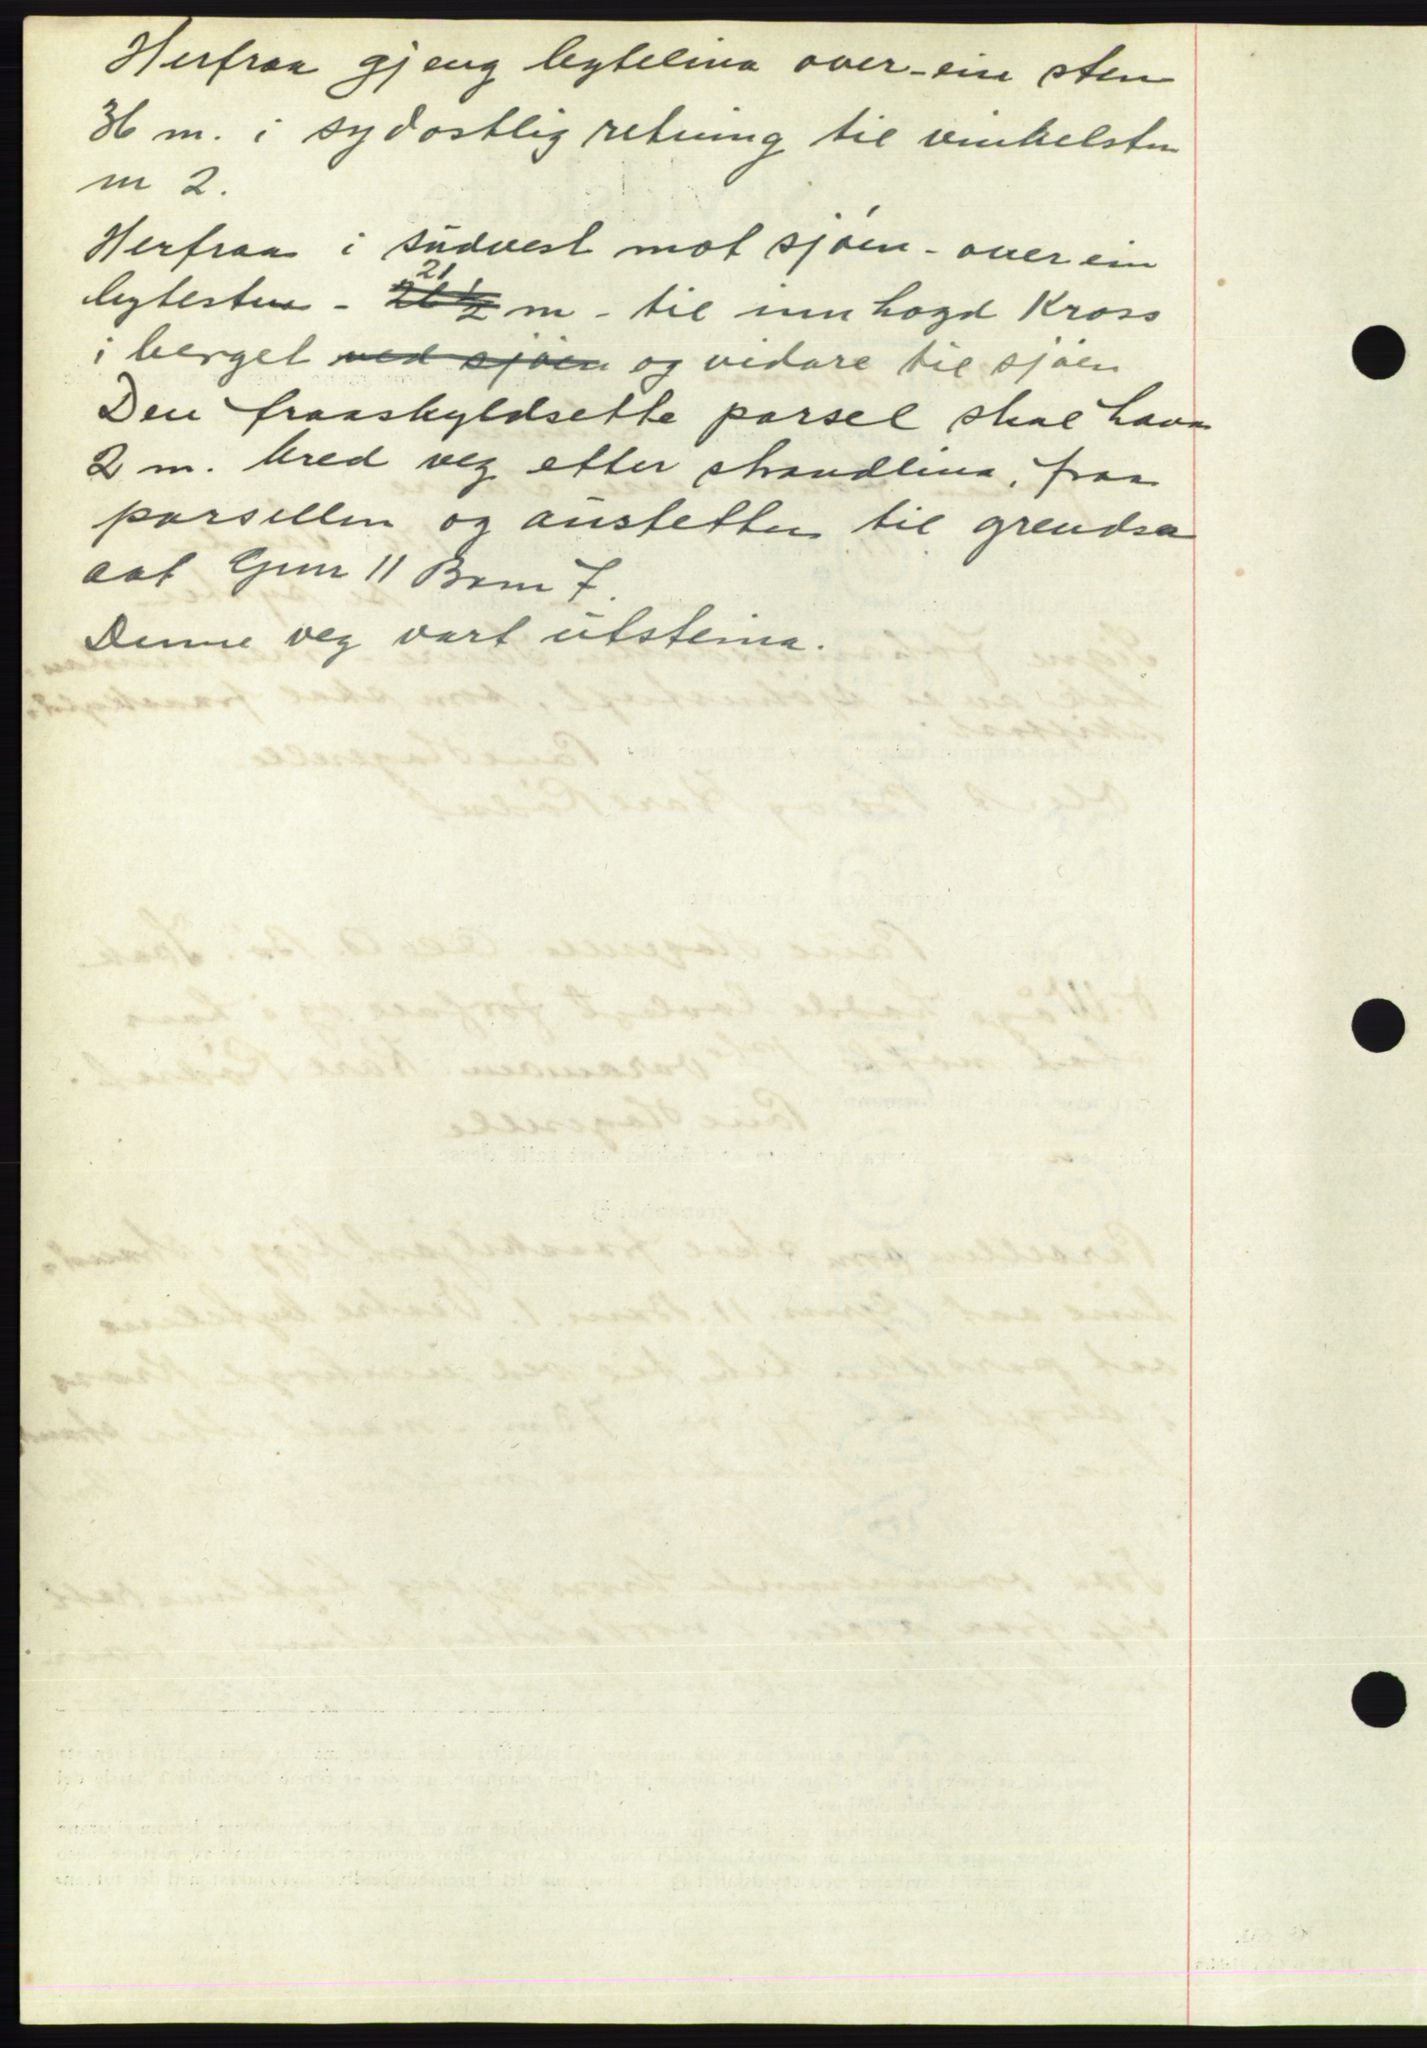 Herfraa gjeng bytelina over - ein sten
36 m. i sydostlig retning til vinkelsten
m 2.
Herfraa i südvest mot sjöen - over ein
bytesten - 21 m - til innhogd Kross
i berget ved sjöen og vidare til sjöen
Den fraaskyldsette parsel skal hava
2 m. bred veg etter strandlina, fraa
parsellen og austetter til grendsa
aat Gnr 11 Brnr 7.
Denne veg vart utsteina.